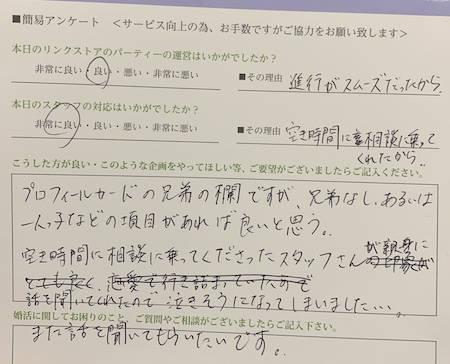 ■簡易アンケート　＜サービス向上の為、お手数ですがご協力をお願い致します＞
本日のリンクストアのパーティーの運営はいかがでしたか？
非常に良い・良い・悪い・非常に悪い　■その理由　進行がスムーズだったから。
本日のスタッフの対応はいかがでしたか？
非常に良い・良い・悪い・非常に悪い　■その理由　空き時間に相談に乗って
くれたから。
こうした方が良い・このような企画をやってほしい等、ご要望がございましたらご記入ください。
プロフィールカードの兄弟の欄ですが、兄弟なし、あるいは
一人っ子などの項目があれば良いと思う。
空き時間に相談に乗ってくださったスタッフさんが親身に
話を聞いてくれたので泣きそうになってしまいました…。
婚活に関してお困りのこと、ご質問やご相談がございましたらご記入下さい。
また話を聞いてもらいたいです。